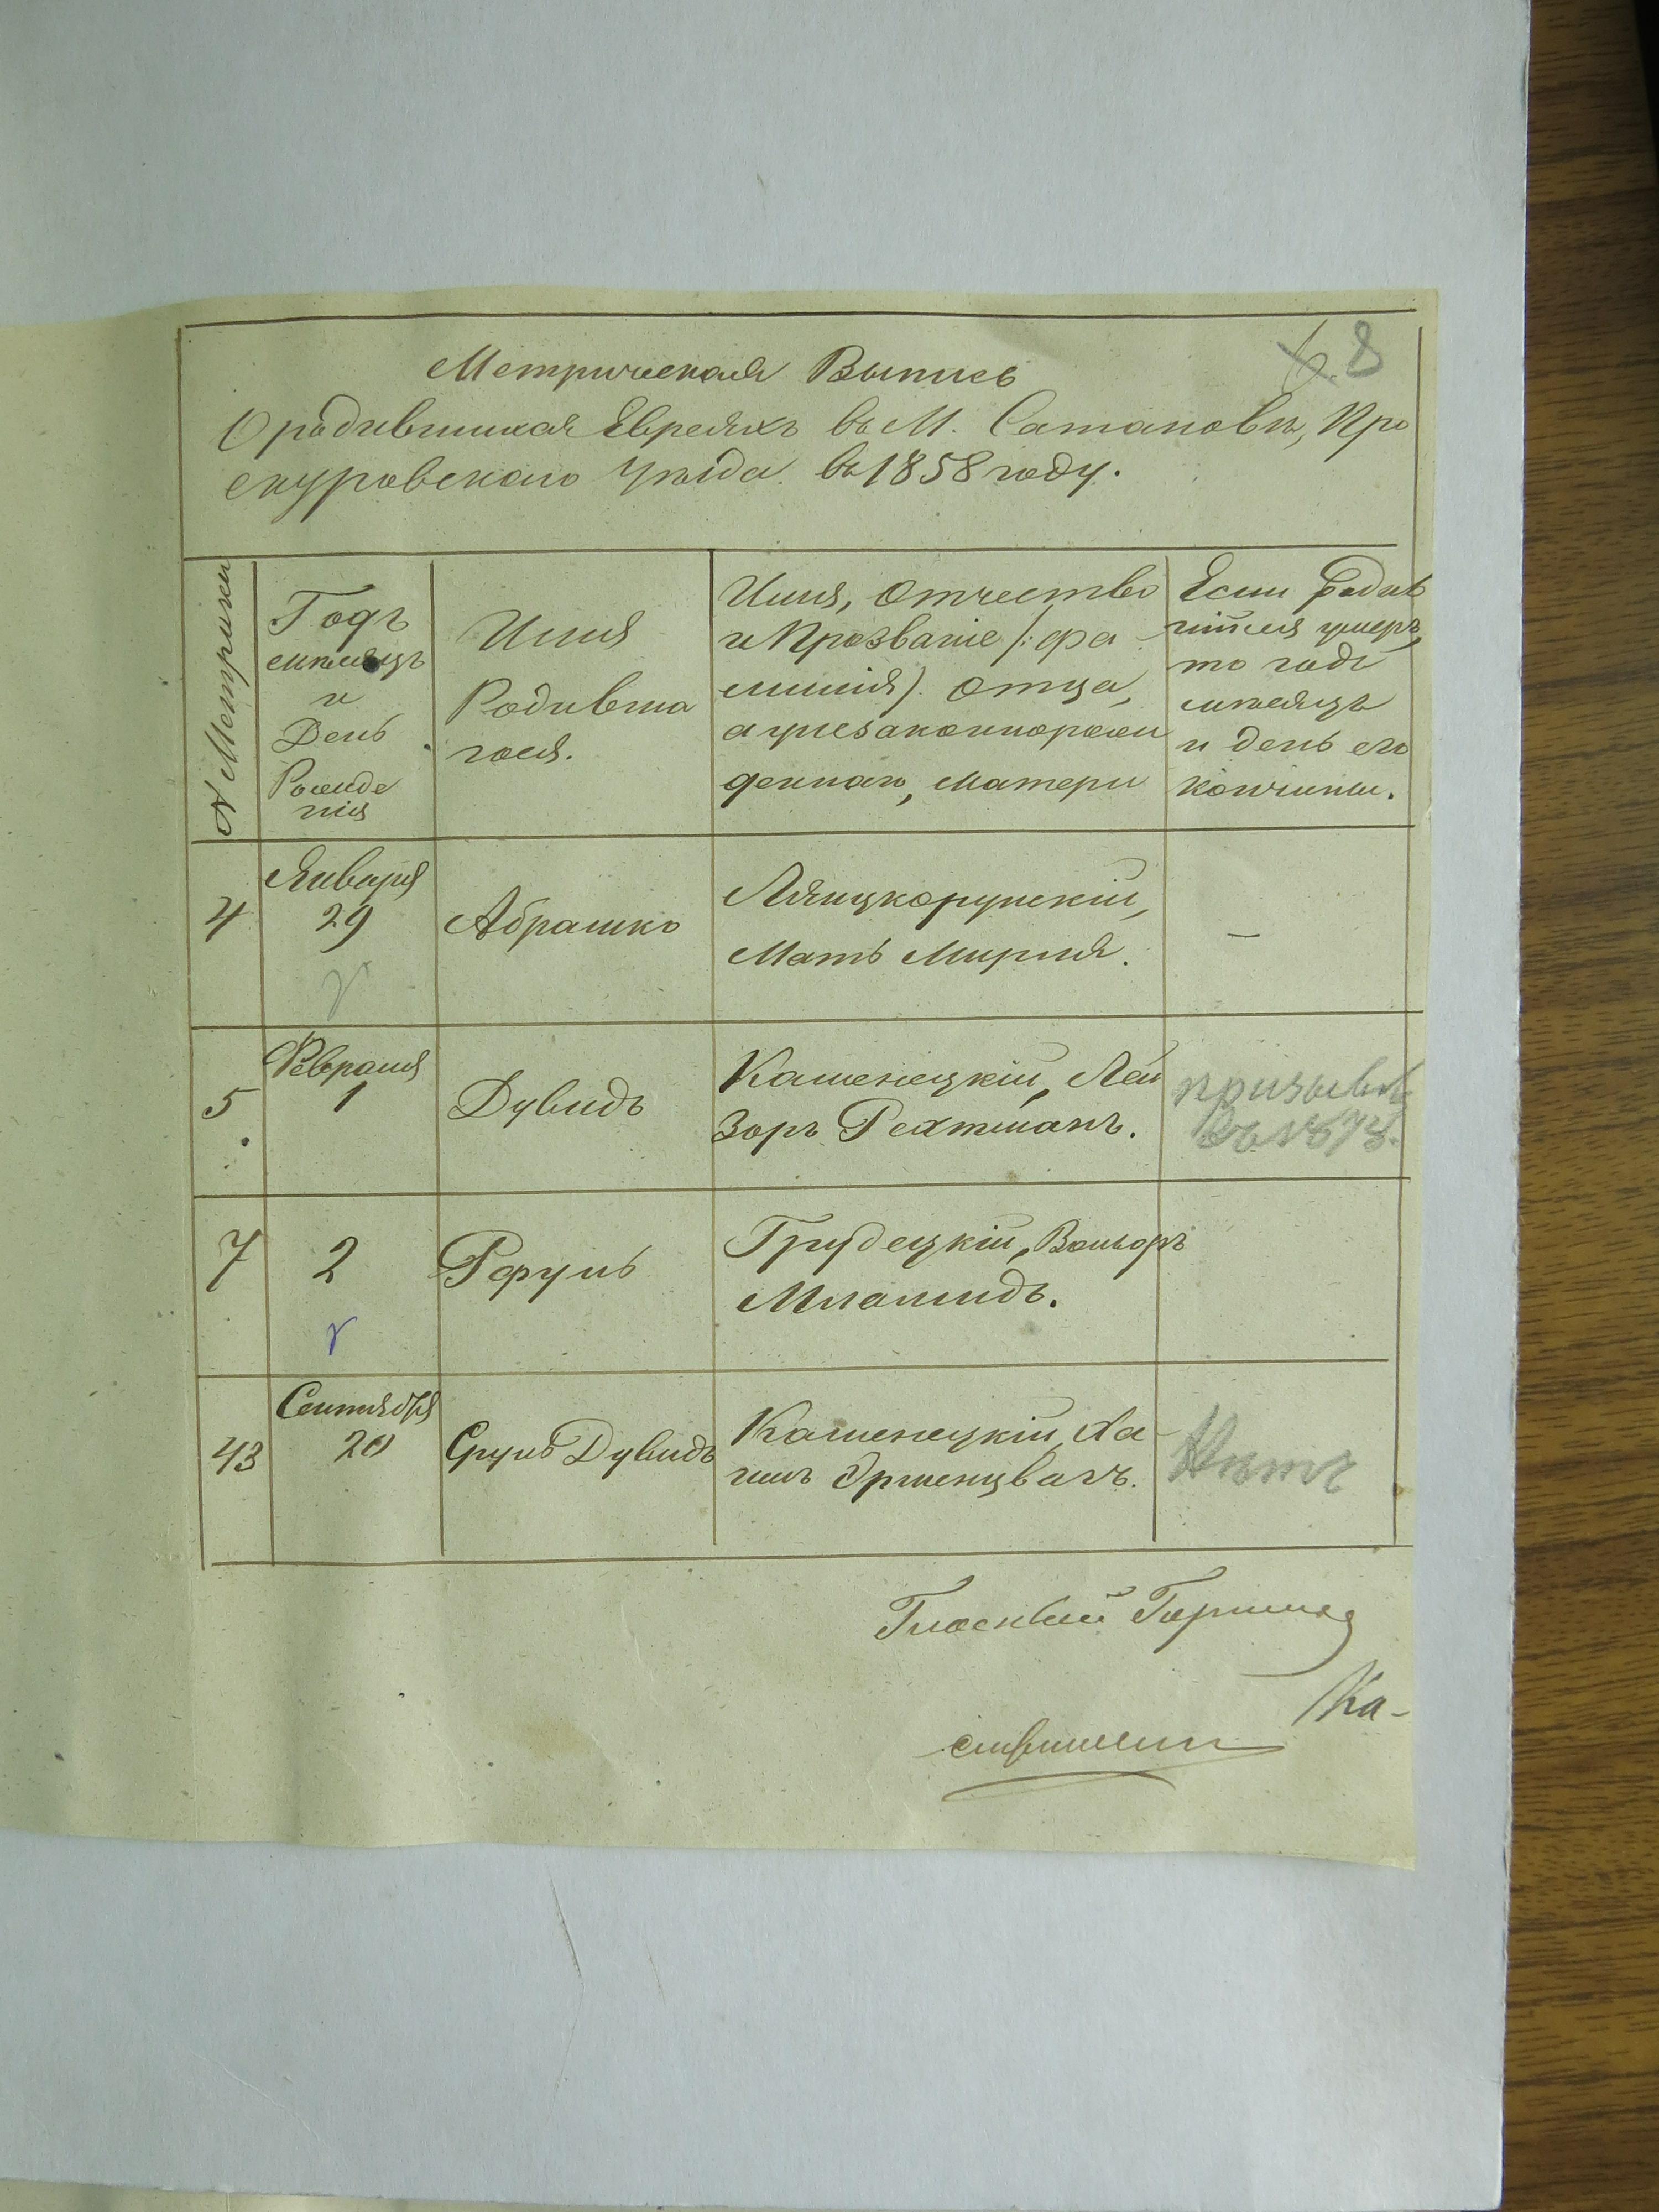 8
Метрическая Выпись
О родившихся Евреяхъ въ М. Сатановѣ, Про
скуровскаго Уѣзда въ 1858 году.
№ Метрики
Годъ
мѣсяцъ
и
День
Рожде
нія
Имя
Родивша
гося.
Имя, Отчество
и Прозваніе /: фа
милія). Отца,
а у незаконнорож
деннаго, матери
Если Родив
шійся умеръ,
то годъ
мѣсяцъ
и день его
кончины.
4
Января
29
Абрашко
Лянцкорунскій,
Мать Мирля.
—
5
Февраля
1
Дувидъ
Каменецкій, Лей
зоръ Рехтманъ.
призывъ
въ
7
2
Рефуль
Грудецкій,
Мламидъ.
43
Сентября
20
Сруль Дувидъ
Каменецкій, Ха
имъ
Нѣтъ
Ка-